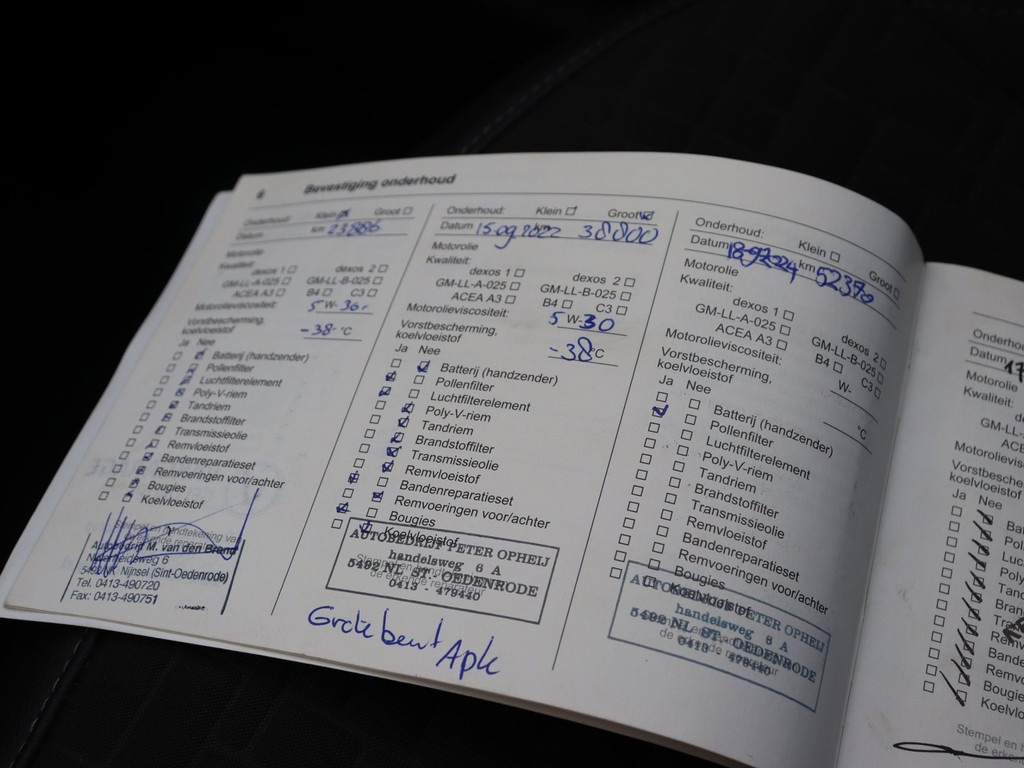 6 Bevestiging onderhoud
Onderhoud: Klein Groot
Datum km 23886
Motorolie
Kwaliteit:
dexos 1 dexos 2
GM-LL-A-025 GM-LL-B-025
ACEA A3 B4 C3
Motorolieviscositeit: 5 W- 30-
Vorstbescherming,
koelvloeistof -38- °C
Ja Nee
Batterij (handzender)
Pollenfilter
Luchtfilterelement
Poly-V-riem
Tandriem
Brandstoffilter
Transmissieolie
Remvloeistof
Bandenreparatieset
Remvoeringen voor/achter
Bougies
Koelvloeistof
Stempel en handtekening van
Autobedrijf M. van den Brand
Nijnsel (Sint-Oedenrode)
Tel. 0413-490720
Fax: 0413-490751
Onderhoud: Klein Groot
Datum 15-09-2022 km 38800
Motorolie
Kwaliteit:
dexos 1 dexos 2
GM-LL-A-025 GM-LL-B-025
ACEA A3 B4 C3
Motorolieviscositeit: 5 W-30
Vorstbescherming,
koelvloeistof -38°C
Ja Nee
Batterij (handzender)
Pollenfilter
Luchtfilterelement
Poly-V-riem
Tandriem
Brandstoffilter
Transmissieolie
Remvloeistof
Bandenreparatieset
Remvoeringen voor/achter
Bougies
Koelvloeistof
AUTOBEDRIJF PETER OPHEIJ
handelsweg 6 A
5492 NL ST. OEDENRODE
0413 - 479440
Grote beurt Apk
Onderhoud: Klein Groot
Datum km 52370
Motorolie
Kwaliteit:
dexos 1 dexos 2
GM-LL-A-025 GM-LL-B-025
ACEA A3 B4 C3
Motorolieviscositeit: W-
Vorstbescherming,
koelvloeistof °C
Ja Nee
Batterij (handzender)
Pollenfilter
Luchtfilterelement
Poly-V-riem
Tandriem
Brandstoffilter
Transmissieolie
Remvloeistof
Bandenreparatieset
Remvoeringen voor/achter
Bougies
Koelvloeistof
AUTOBEDRIJF PETER OPHEIJ
handelsweg 6 A
5492 NL ST. OEDENRODE
0413 - 479440
Onderho
Datum 17
Motorolie
Kwaliteit:
GM-LL-
ACE
Motorolievis
Vorstbesche
koelvloeistof
Ja Nee
Ba
Pol
Luc
Poly
Tand
Bran
Tra
Remv
Bande
Remv
Bougie
Koelvlo
Stempel en h
de erke